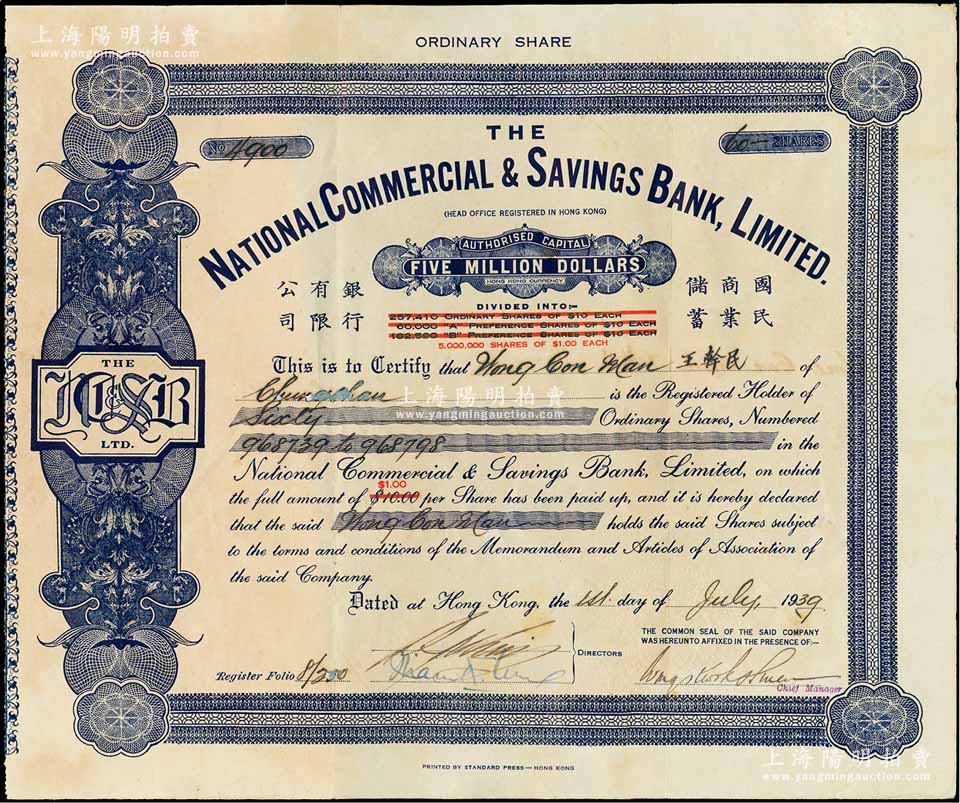 上海陽明拍賣
www.yangmingauction.com
ORDINARY SHARE
No 4900
60— SHARES
THE
NATIONAL COMMERCIAL & SAVINGS BANK, LIMITED.
(HEAD OFFICE REGISTERED IN HONG KONG)
AUTHORISED CAPITAL
FIVE MILLION DOLLARS
HONG KONG CURRENCY
公有銀 儲商國
司限行 蓄業民
DIVIDED INTO:-
257,410 ORDINARY SHARES OF $10 EACH
60,000 "A" PREFERENCE SHARES OF $10 EACH
182,590 "B" PREFERENCE SHARES OF $10 EACH
5,000,000 SHARES OF $1.00 EACH
THE
NC&SB
LTD.
This is to Certify that Wong Con Man 王幹民 of
is the Registered Holder of
Sixty Ordinary Shares, Numbered
968739 to 968798 in the
National Commercial & Savings Bank, Limited, on which
$1.00
the full amount of $10.00 per Share has been paid up, and it is hereby declared
that the said Wong Con Man holds the said Shares subject
to the terms and conditions of the Memorandum and Articles of Association of
the said Company.
Dated at Hong Kong, the 1st day of July, 1939.
DIRECTORS
THE COMMON SEAL OF THE SAID COMPANY
WAS HEREUNTO AFFIXED IN THE PRESENCE OF:-
Register Folio 8/200
Chief Manager
PRINTED BY STANDARD PRESS — HONG KONG
上海陽明拍賣
www.yangmingauction.com
上海陽明拍賣
www.yangmingauction.com